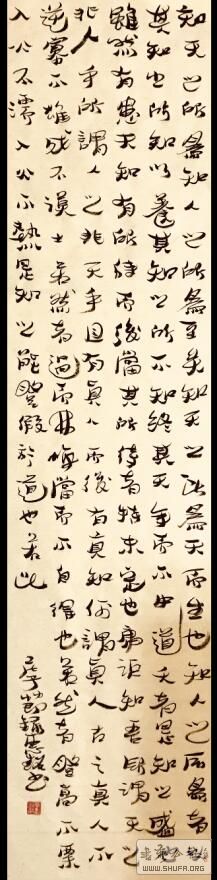 知天之所爲知人之所爲至矣知天之所爲天而生也知人之所爲者
其知之所知以養其知之所不知終其天年而不中道夭者是知之盛也
雖然有患夫知有所待而後當其所待者特未定也庸詎知吾所謂天之
非人乎所謂人之非天乎且有真人而後有真知何謂真人古之真人不
逆寡不雄成不謨士若然者過而弗悔當而不自得也若然者登高不栗
入水不濡入火不熱是知之能登假於道也若此
莊子節錄 書
WWW.SHUFA.COM